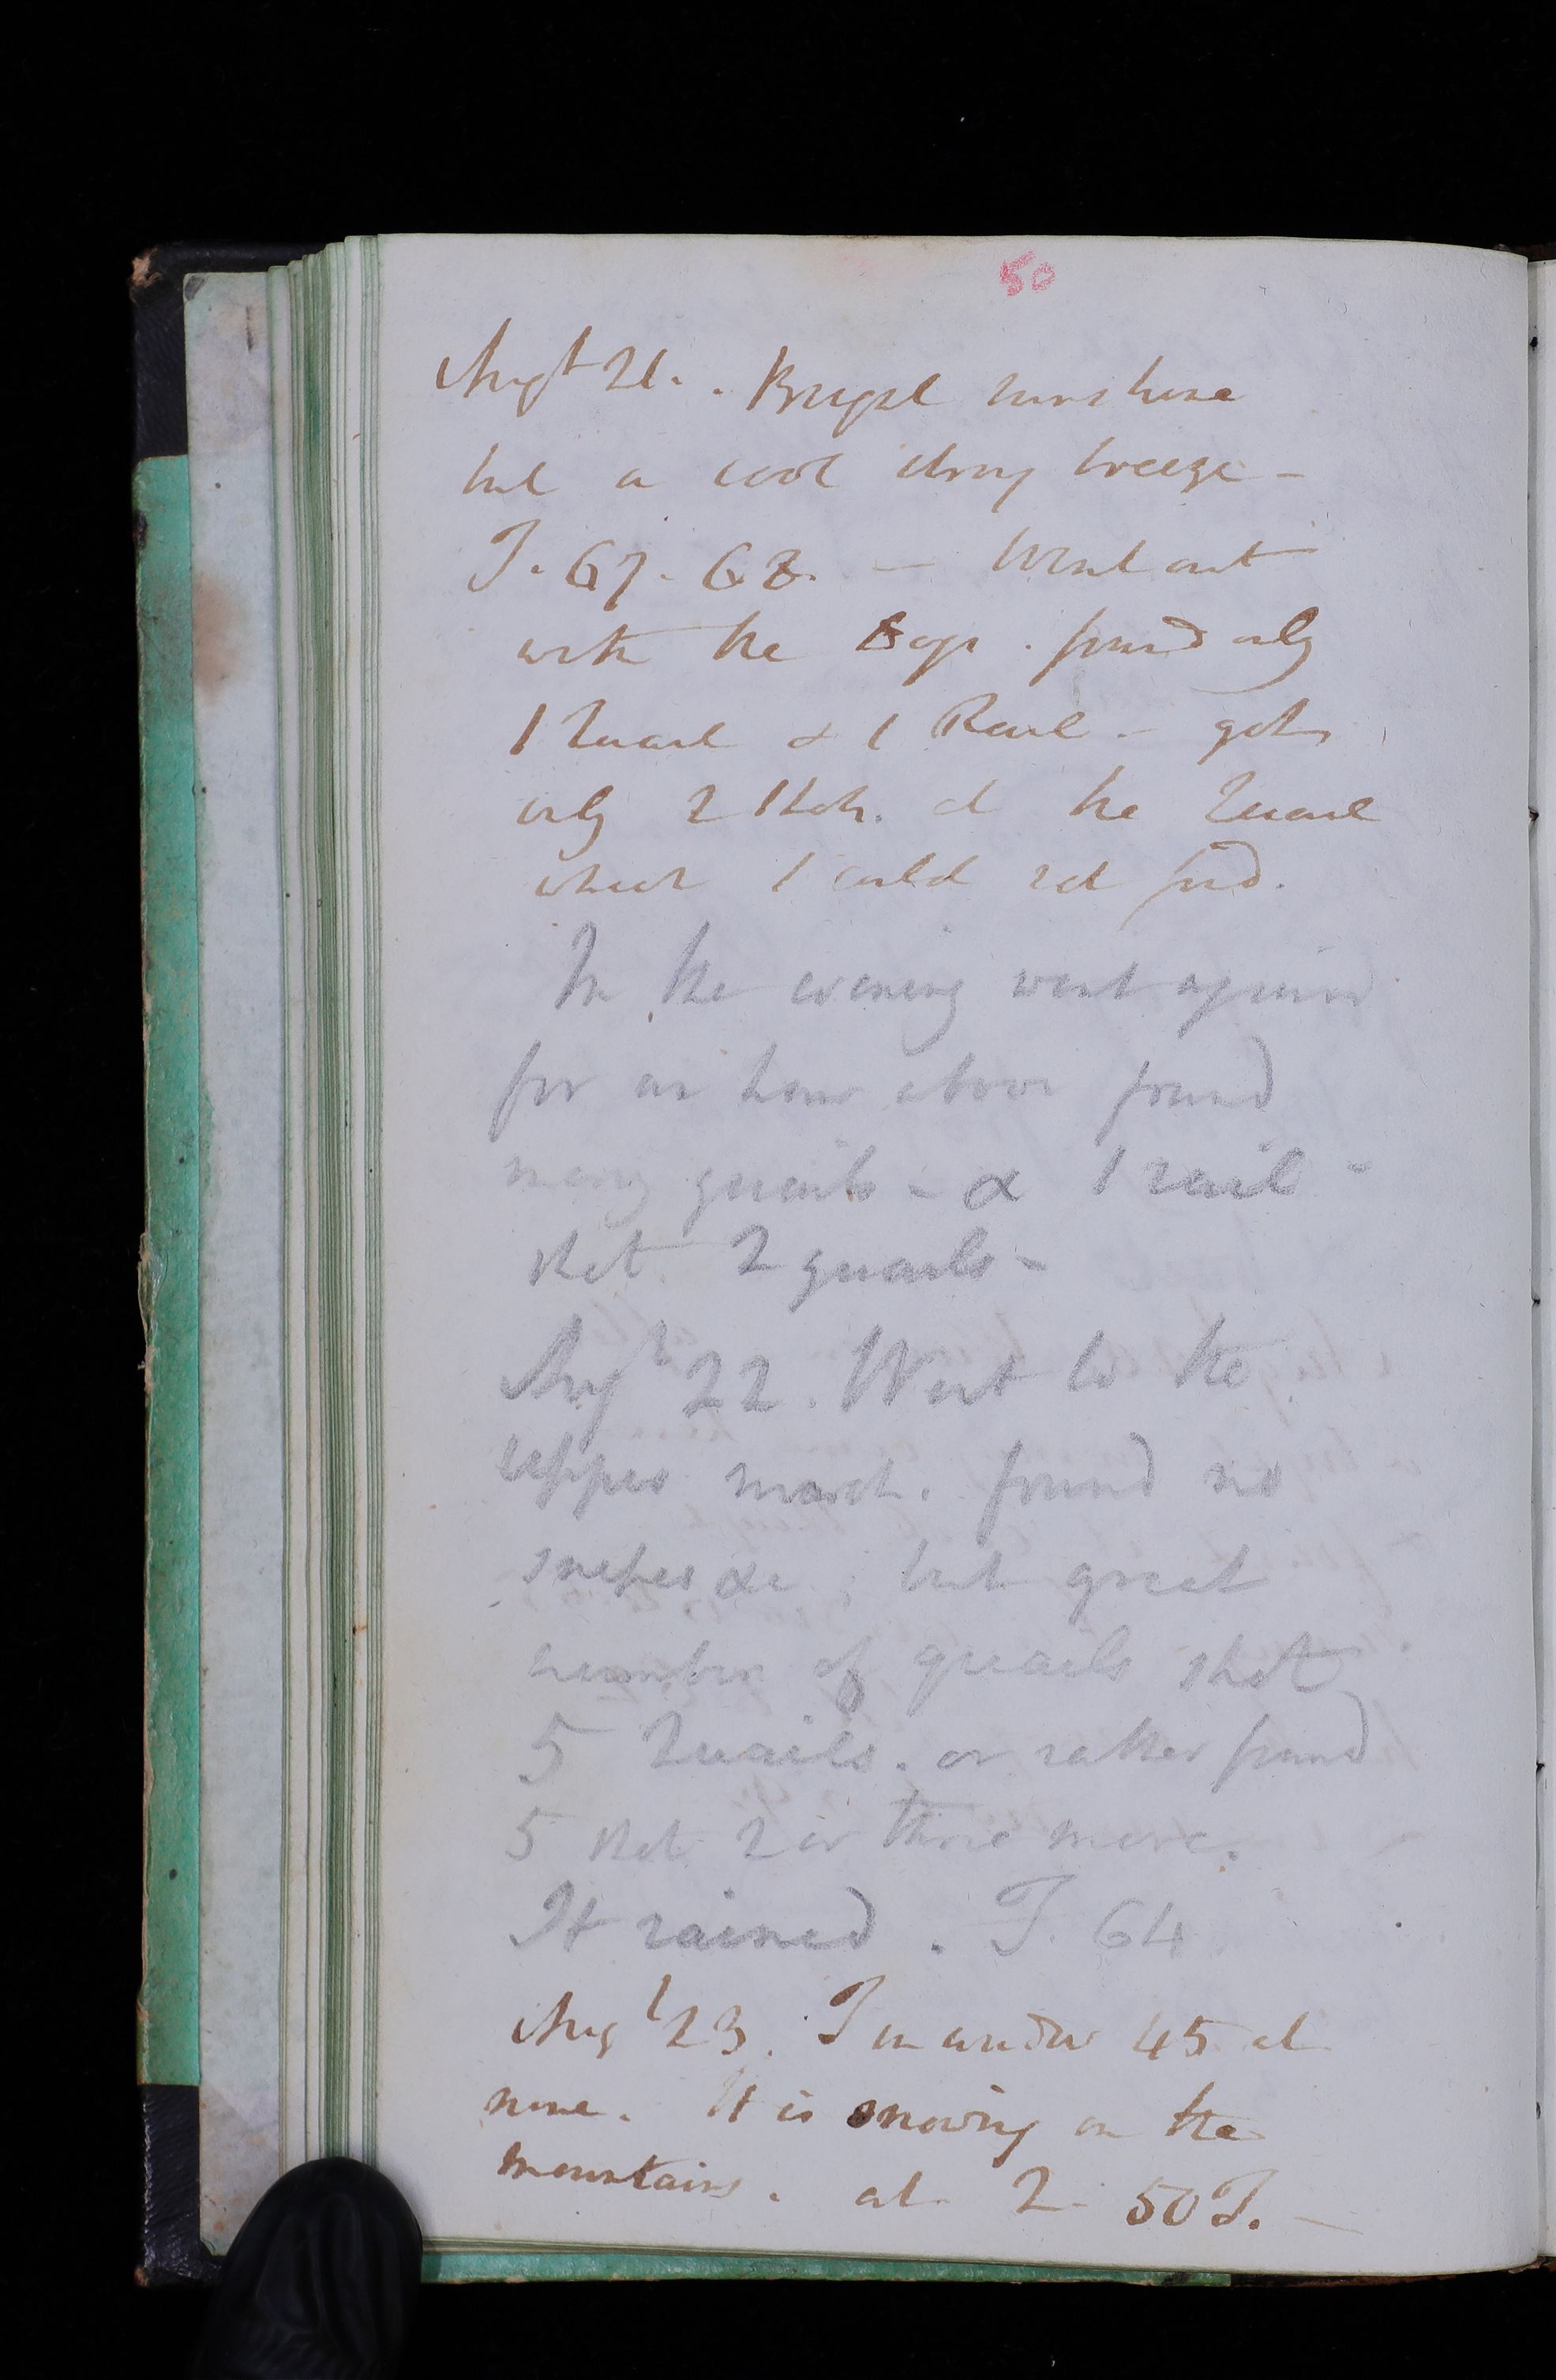 50
Augt 21. . Bright sunshine
but a cool strong breeze –
T. 67. 68. — Went out
with the Dogs . found only
1 Quail & 1 Rail – got
only 2 Shots. at the Quail
which I could not find.
In the evening went again
for an hour above found
many quails – & 1 rail –
shot 2 quails –
Augt 22. Went to the
upper marsh. found no
snipes &c ; but great
number of quails shot
5 Quails . or rather found
5 shot 2 or three more.
It rained . T. 64
Augt 23. T in window 45 at
nine. It is snowing on the
mountains . at 2 50 T. —